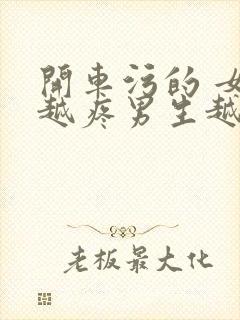 開車污的 女
越疼男生越
老板最大化